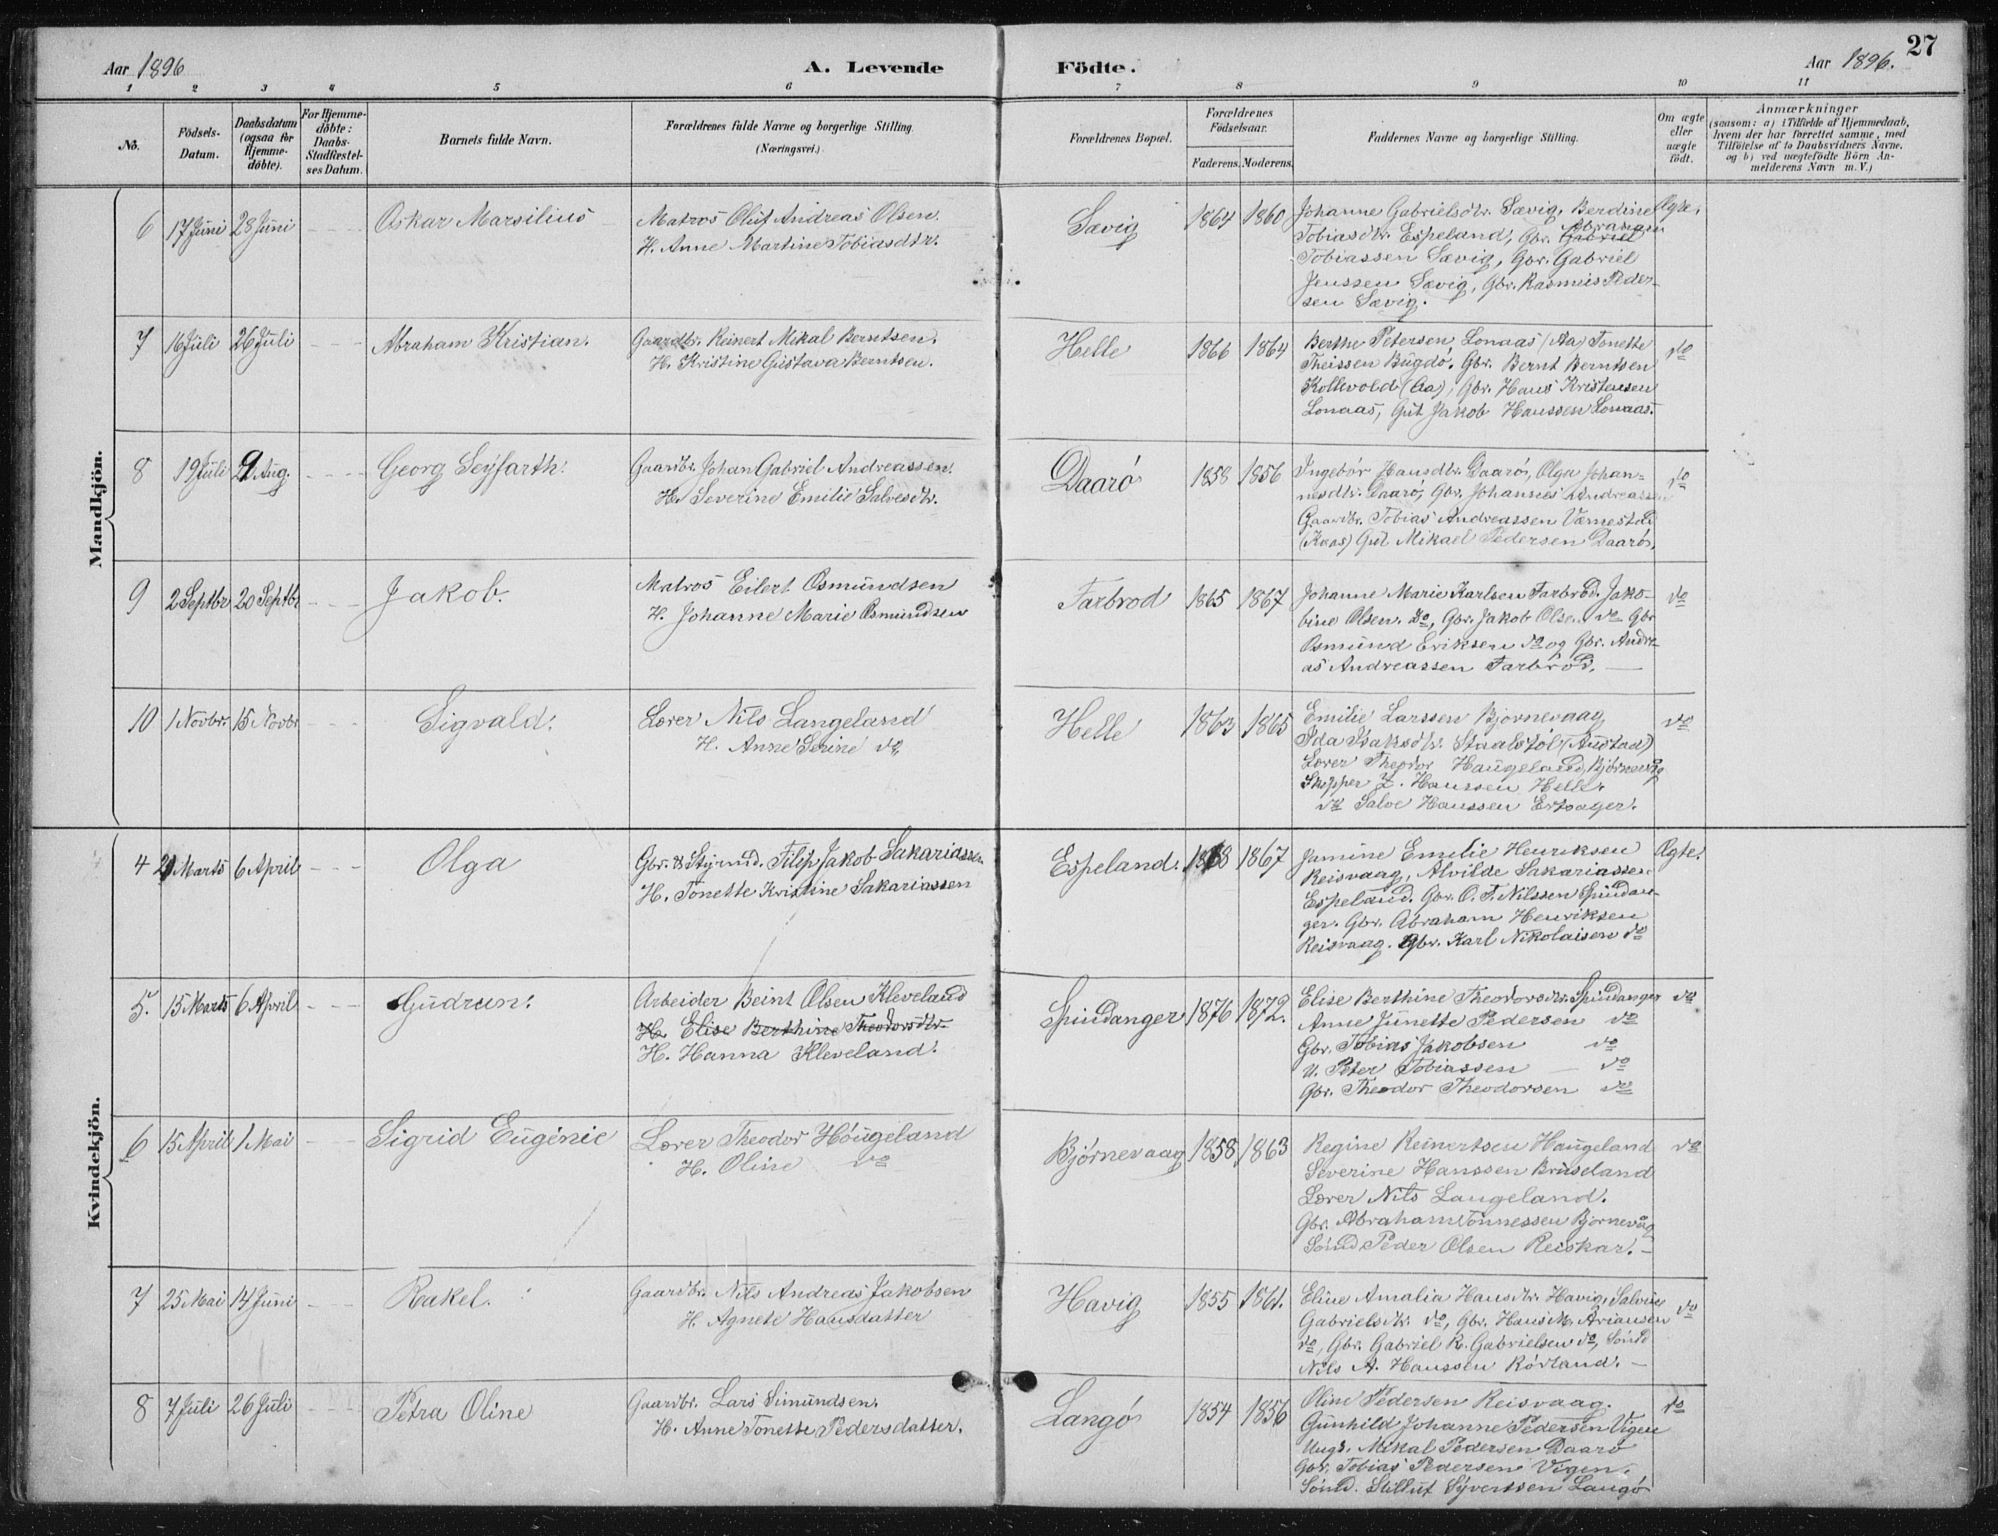 27
Aar 1896 A. Levende Fødte. Aar 1896.
1 2 3 4 5 6 7 8 9 10 11
No. Födsels-Datum. Daabsdatum (ogsaa for Hjemme-døbte). For Hjemme-døbte: Daabs-Stadfæstel-ses Datum. Barnets fulde Navn. Forældrenes fulde Navne og borgerlige Stilling. (Næringsvei.) Forældrenes Bopæl. Forældrenes Födselsaar. Faderens. Moderens. Faddernes Navne og borgerlige Stilling. Om ægte eller uægte født. Anmærkninger
(saasom: a) i Tilfælde af Hjemmedaab, hvem der har forrettet samme, med Tilföielse af to Daabsvidners Navne. og b) ved uægtefödte Börn An-melderens Navn m. V.)
Mandkjön.
6 17 Juni 28 Juni Oskar Marsilius Matros Oluf Andreas Olsen. Sævig 1864 1860 Johanne Gabrielsdtr. Sævig, Berdine Ægte.
H. Anne Martine Tobiasdtr. Tobiasdtr. Espeland, Gbr. Gabriel Abraham
Tobiassen Sævig, Gbr. Gabriel
Jenssen Sævig, Gbr. Rasmus Peder-
sen Sævig.
7 16 Juli 26 Juli Abraham Kristian. Gaardbr. Reinert Mikal Berntsen. Helle 1866 1864 Berthe Petersen, Lonaas (Aa) Tonette do
H. Kristine Gustava Berntsen. Theissen Bugdø. Gbr. Bernt Berntsen
Kollevold (Aa), Gbr. Hans Kristensen
Lonaas, Gut Jakob Hanssen Lonaas.
8 19 Juli 9 Aug. Georg Seyfarth. Gaardbr. Johan Gabriel Andreassen. Daarø 1858 1856 Ingebór Hansdtr. Daarø, Olga Johan- do
H. Severine Emilie Salvesdtr. nesdtr. Daarø, Gbr. Johannes Andreassen
Gaardbr. Tobias AndreassenVærnestad
(Kaas) Gut Mikael Pedersen Daarø.
9 2 Septbr 20 Septbr Jakob. Matros Eilert Osmundsen Farbrod 1865 1867 Johanne Marie Karlsen Farbrod. Jako- do
H. Johanne Marie Osmundsen bine Olsen. Do, Gbr. Jakob Olsen do Gbr
Osmund Eriksen do og Gbr. Andre-
as Andreassen Farbrod.
10 1 Novbr. 15 Novbr Sigvald. Lærer Nils Langeland Helle 1863 1865 Emilie Larssen Bjørnevaag do
H. Anne Serine do Ida Isaksdtr. Staalstøl (Austad)
Lærer Theodor Haugeland, Bjørnevåg
Skipper Z. Hanssen Helle.
do Salve Hanssen Ertsager.
Kvindekjön.
4 21 Marts 6 April Olga Gbr. & Styrmd. Filip Jakob Sakariassen Espeland. 1868 1867 Jamine Emilie Henriksen Ægte.
H. Tonette Kristine Sakariassen Reisvaag, Alvilde Sakariassen
Espeland. Gbr. O. T. Nilssen Spindan-
ger. Gbr. Abraham Henriksen
Reisvaag. Gbr. Karl Nikolaisen do
5. 15 Marts 6 April Gudrun. Arbeider Beint Olsen Kleveland Spindanger 1876 1872. Elise Berthine Theodorsdtr. Spindanger do
H. Elise Berthine Theodorsdtr. Anne Junette Pedersen do
H. Hanna Kleveland. Gbr. Tobias Jakobsen do
U. Peter Tobiassen do
Gbr. Theodor Theodorsen do
6 15 April 1 Mai Sigrid Eugénie Lærer Theodor Hougeland Bjørnevaag 1858 1863 Regine Reinertsen Haugeland do
H. Oline do Severine Hanssen Bruseland
Lærer Nils Langeland.
Gbr. Abraham Tönnessen Bjørnevåg
Sönd Peder Olsen Reiskar.
7 25 Mai 14 Juni Rakel. Gaardbr. Nils Andreas Jakobsen Havig 1855 1861. Eline Amalia Hansdtr. Havig, Salvine do
H. Agnete Hansdatter Gabrielsdtr. do, Gbr. Hans M. Ariansen
do, Gbr. Gabriel R. Gabrielsen do, Sönd
Nils A. Hanssen Rörland.
8 7 Juli 26 Juli Petra Oline Gaardbr. Lars Simundsen. Langø 1854 1856 Oline Pedersen Reisvaag. do
H. Anne Tonette Pedersdatter. Gunhild Johanne Pedersen Vigen
Ungk. Mikal Pedersen Daarø
Gbr. Tobias Pedersen Vigen.
Sönd. Stillut Syvertsen Langø